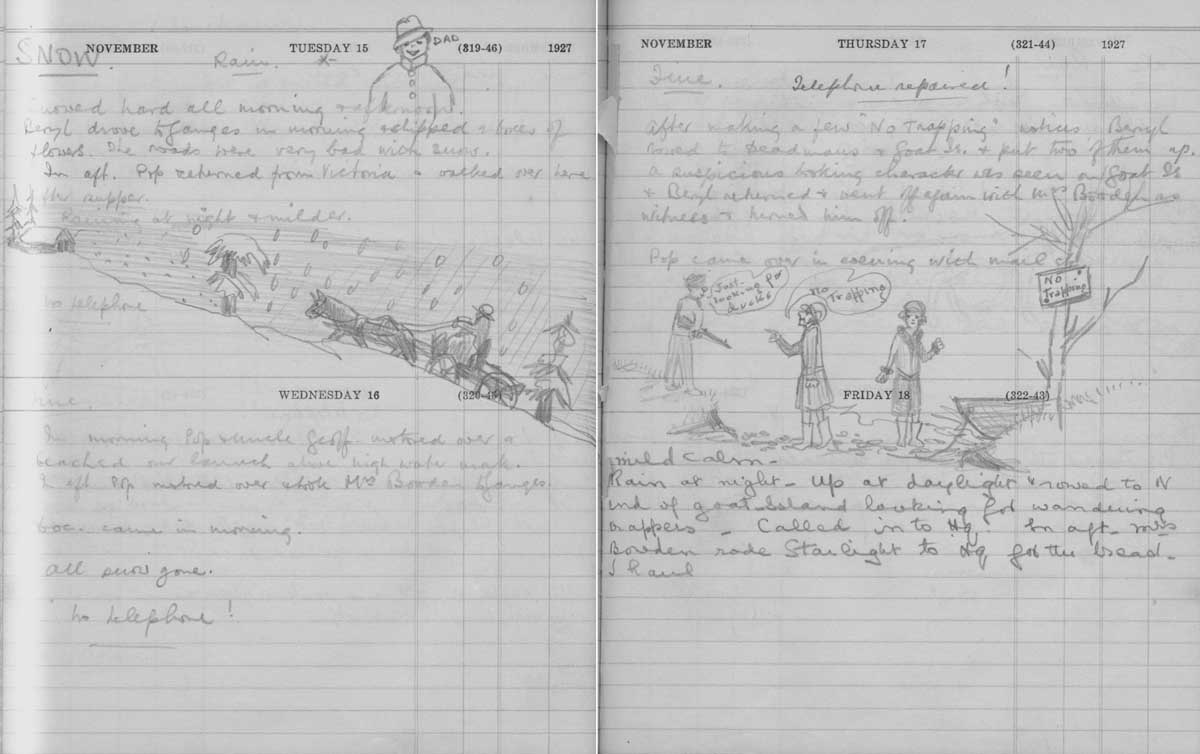 SNOW.
NOVEMBER TUESDAY 15 (319-46) 1927
DAD
Rain.
Snowed hard all morning & afternoon.
Beryl drove to Ganges in morning & shipped a box of
flowers. The roads were very bad with snow.
In aft. Pop returned from Victoria & walked over here
after supper.
Raining at night & milder.
No telephone
WEDNESDAY 16 (320-45)
Fine.
In morning Pop & Uncle Geoff. motored over &
beached our launch above high water mark.
In aft Pop motored over & took Mrs Bowden to Ganges.
came in morning.
All snow gone.
No telephone!
NOVEMBER THURSDAY 17 (321-44) 1927
Fine. Telephone repaired!
After making a few "No Trapping" notices Beryl
rowed to Deadmans & Goat Is. & put two of them up.
A suspicious looking character was seen on Goat Is
& Beryl returned & went off again with Mrs Bowden as
witness & turned him off.
Pop came over in evening with mail
Just looking for ducks
No Trapping
No Trapping
FRIDAY 18 (322-43)
Mild Calm -
Rain at night - Up at daylight & rowed to N
end of Goat Island looking for wandering
trappers - Called in to Hq. In aft. Mrs
Bowden rode Starlight to Hq for the bread -